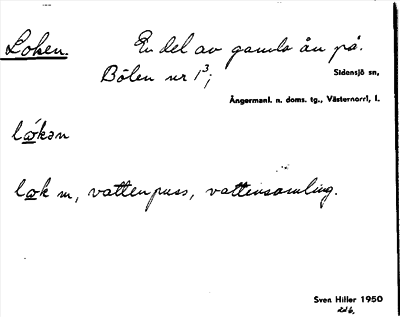 Loken. En del av gamla ån på.
Bölen nr 1³;
Sidensjö sn,
Ångermanl. n. doms. tg., Västernorrl, l.
lɷkən
lɷk m, vattenpuss, vattensamling.
Sven Hiller 1950